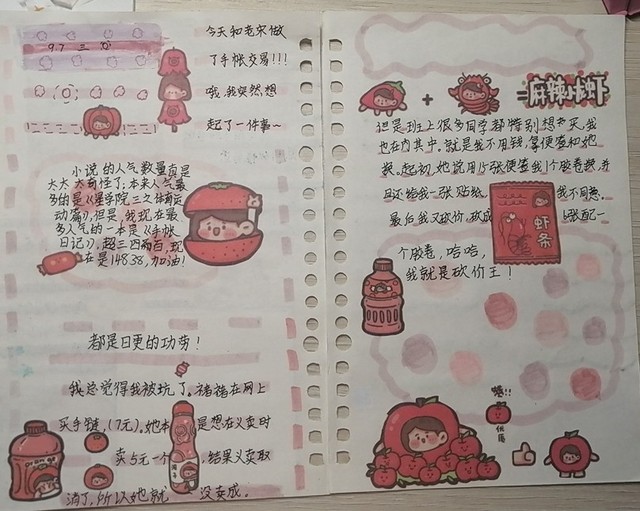 9.7 三
今天和老宋做
了手帐交易!!!
哦,我突然想
起了一件事~
小说的人气数量真是
太太太奇怪了,本来人气最
多的是《星学院三之体育运
动篇》,但是,我现在最
多人气的一本是《手帐
日记》,超三四两百,现
在是14838,加油!
都是日更的功劳!
我总觉得我被坑了。猪猪在网上
买手链,(7元)。她本 是想在义卖时
卖5元一个 ,结果义卖取
消了,所以她就 没卖成。
麻辣小龙虾
但是班上很多同学都特别想买,我
也在内其中。就是我不用钱,拿便签和她
换。起初,她说用15张便签换1个胶卷,并
且还给我一张贴纸, 我不同意,
最后我又砍价,砍成 张配一
虾条
个胶卷,哈哈,
我就是砍价王!
嘻!!